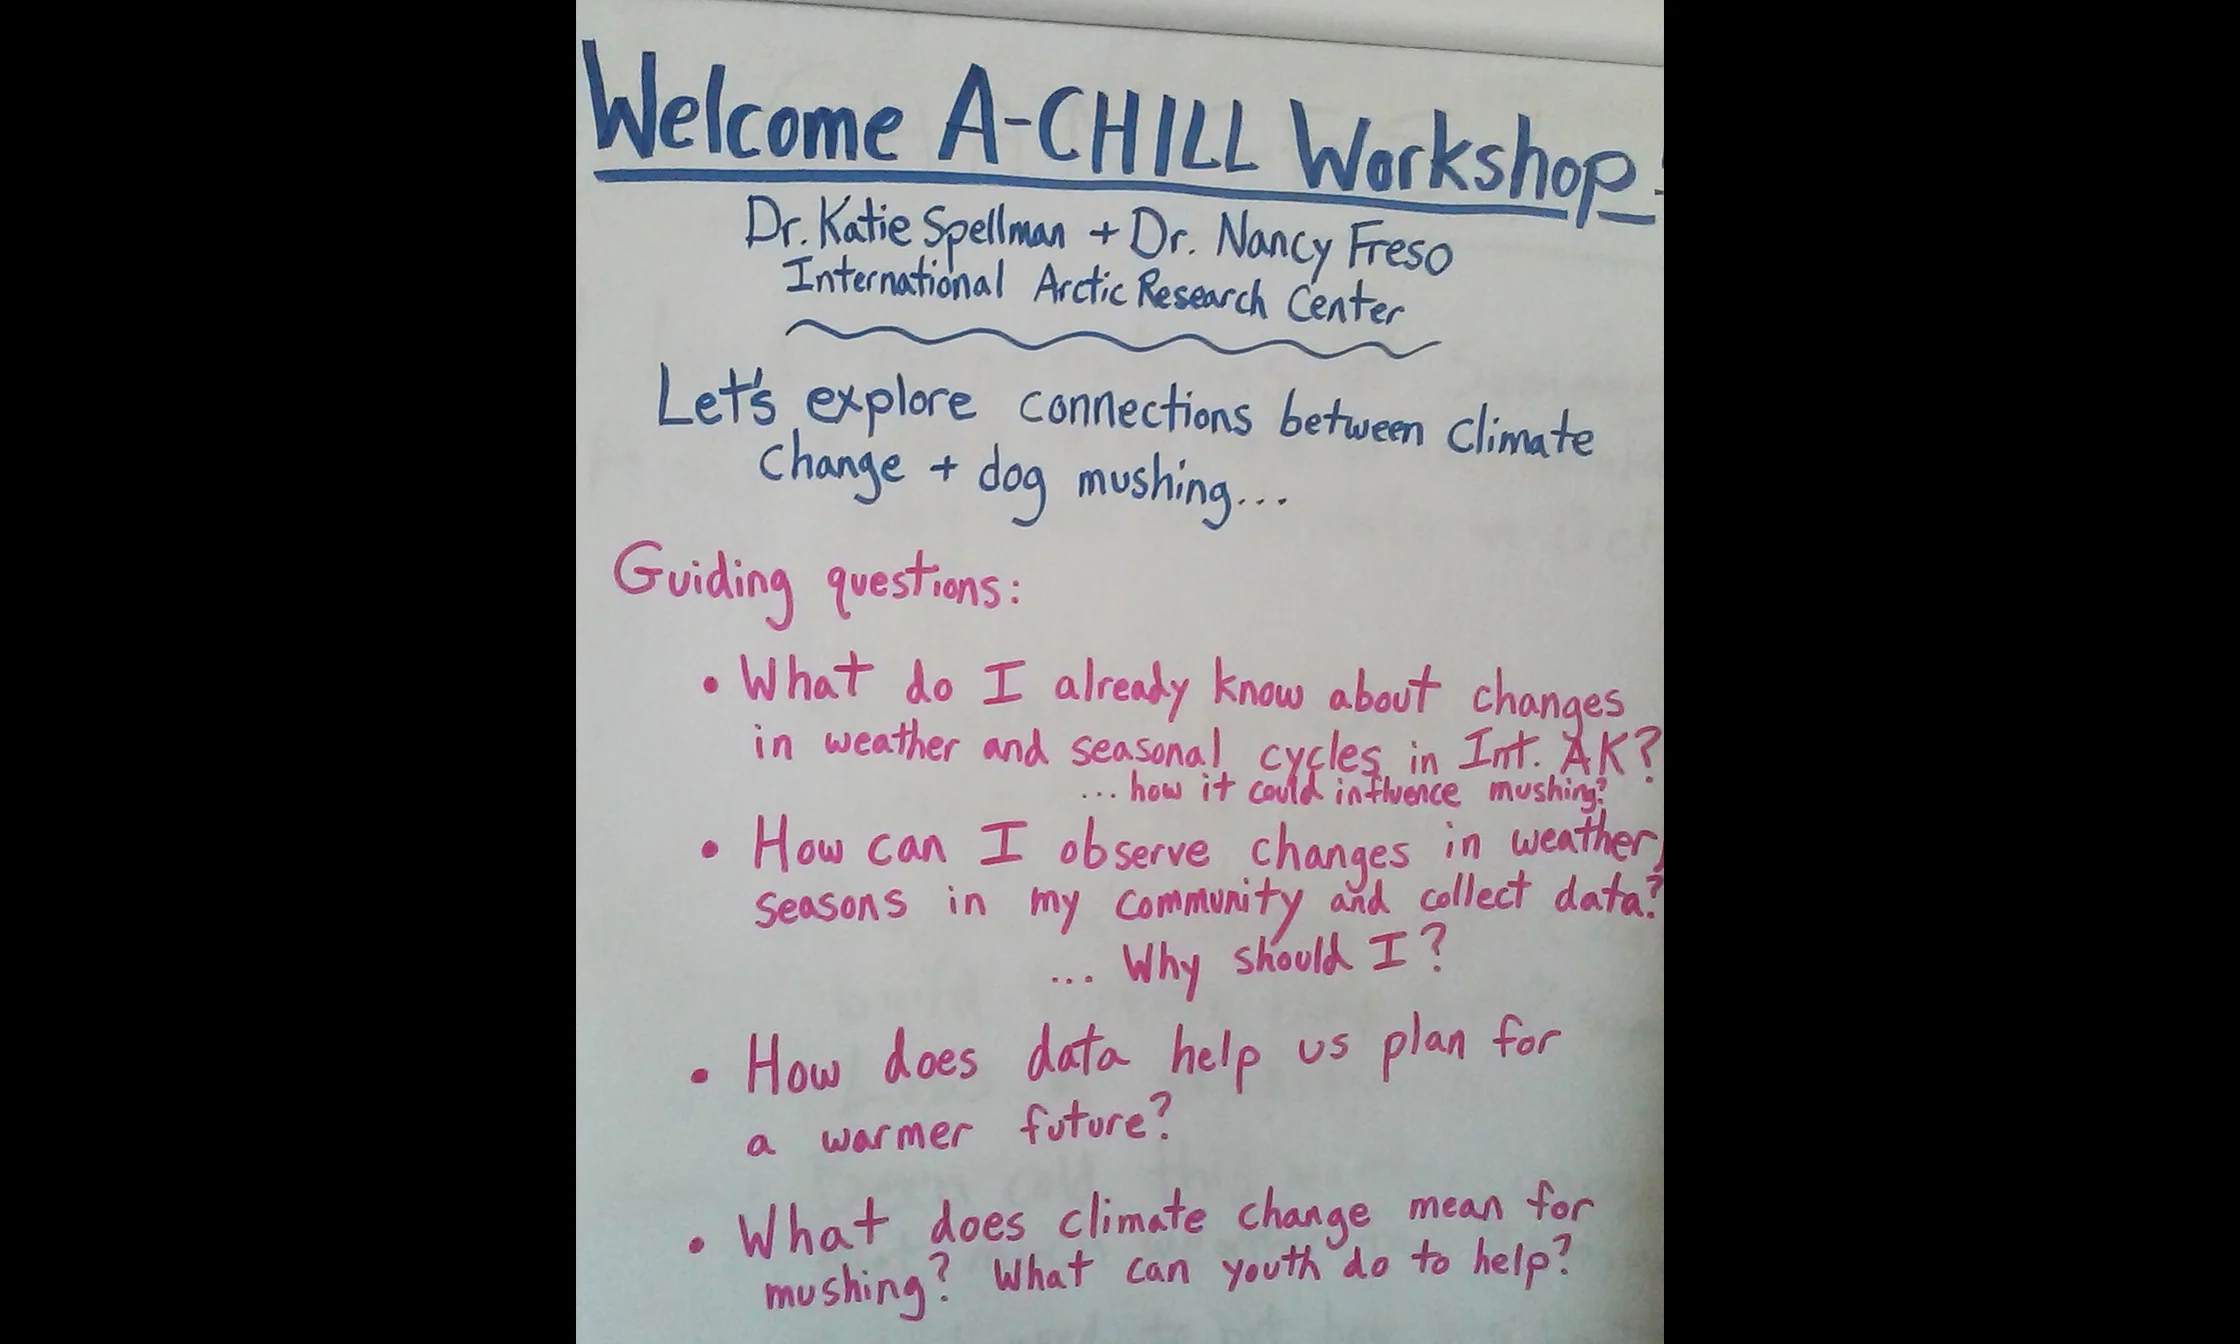 Welcome A-CHILL Workshop!
Dr. Katie Spellman + Dr. Nancy Freso
International Arctic Research Center
Let's explore connections between climate
change + dog mushing...
Guiding questions:
• What do I already know about changes
in weather and seasonal cycles in Int. AK?
... how it could influence mushing?
• How can I observe changes in weather,
seasons in my community and collect data?
... Why should I?
• How does data help us plan for
a warmer future?
• What does climate change mean for
mushing? What can youth do to help?